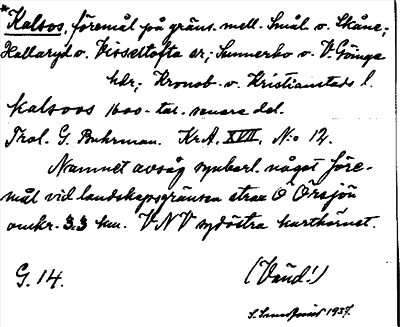 *Kalsos, föremål på gräns. mell. Smål. o. Skåne;
Hallaryd o. Visseltofta sr; Sunnerbo o. V. Göinge
hdr; Kronob. o. Kristianstads l.
Kalsoos 1600-tal. senare del.
Prol. G. Buhrman. KrA. XVII, N:o 12.
Namnet avsåg synbarl. något före-
mål vid landskapsgränsen strax Ö Örsjön
omkr. 3.3 km. VNV sydöstra karthörnet.
G. 14. (Vänd!)
1937.